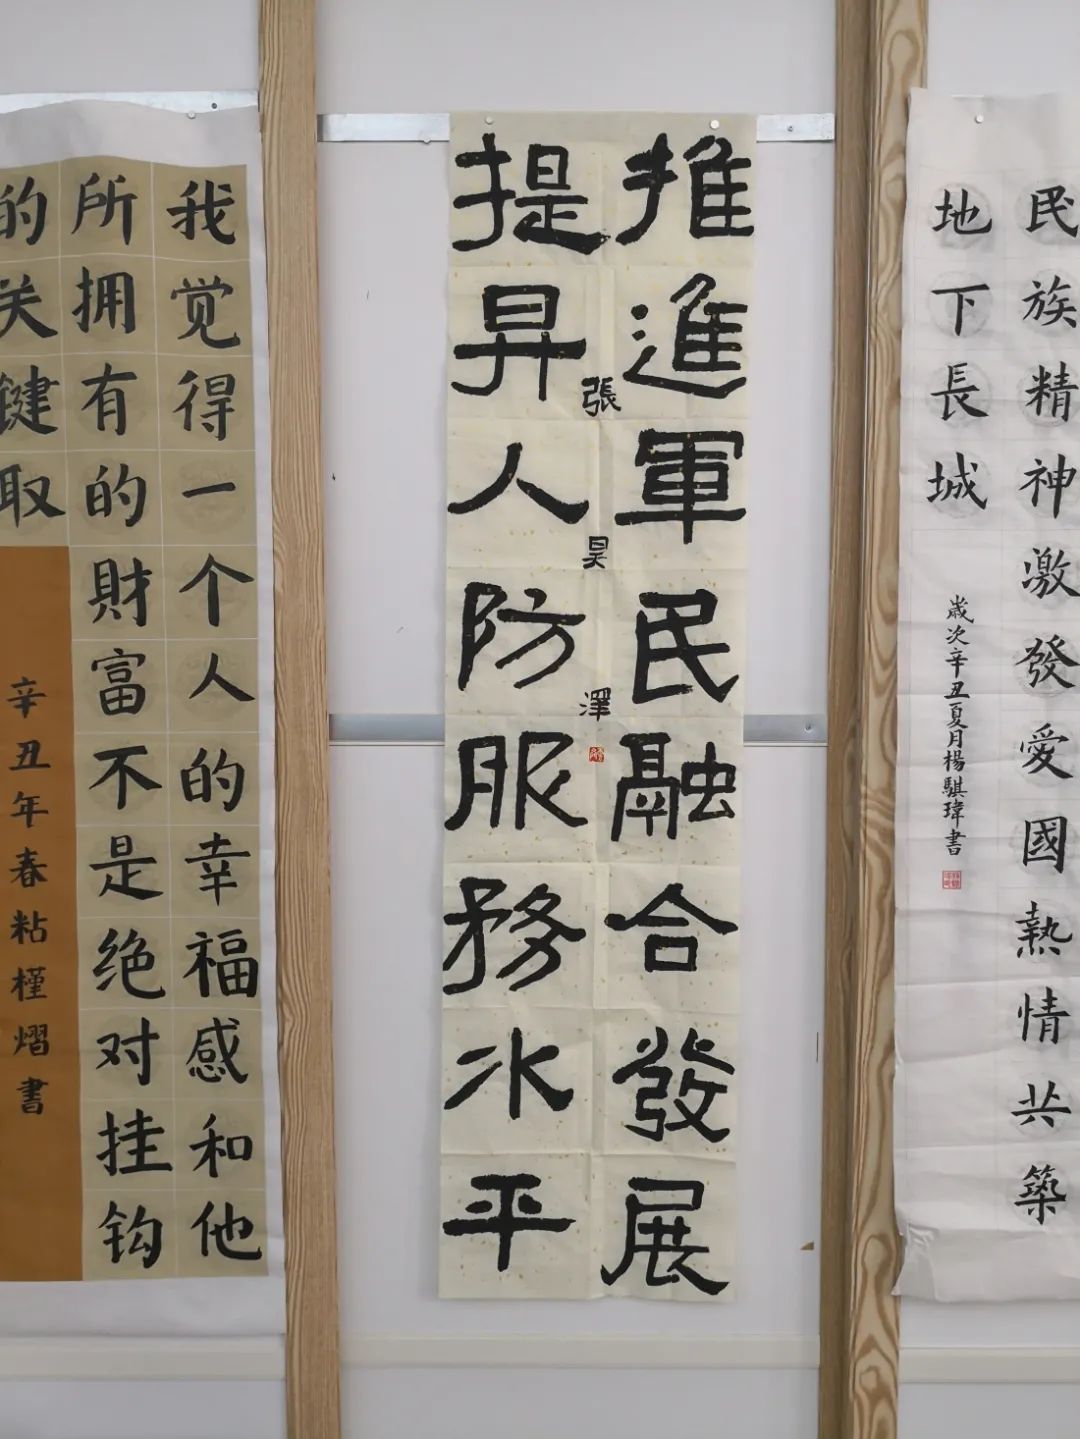 民族精神激發愛國熱情共築
地下長城
歲次辛丑夏月楊騏瑋書
推進軍民融合發展
提昇人防服務水平
張昊澤
我觉得一个人的幸福感和他
所拥有的財富不是绝对挂钩
的关键取
辛丑年春粘槿熠書